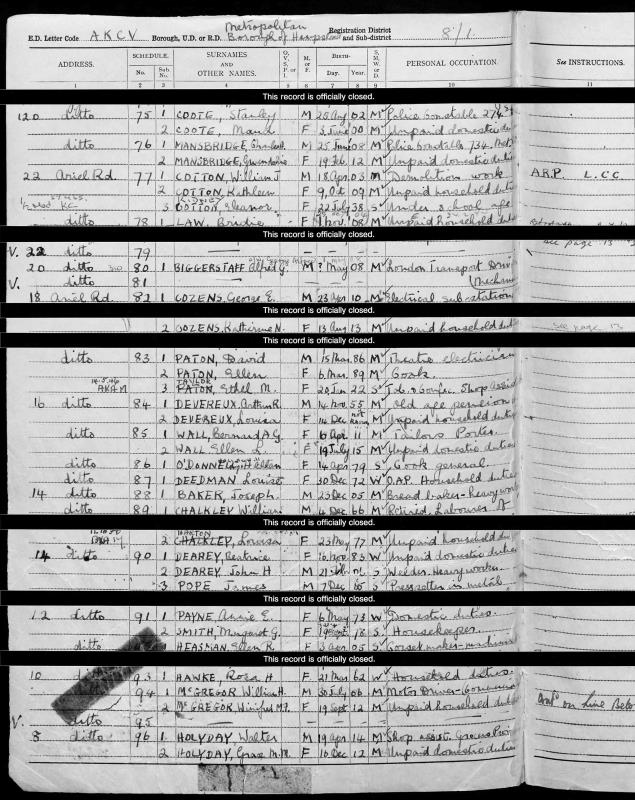 E.D. Letter Code AKCV Borough, U.D. or R.D. Metropolitan Borough of Hampstead Registration District and Sub-district 8/1
ADDRESS. SCHEDULE. No. Sub. No. SURNAMES AND OTHER NAMES. O, V, S, P, or I M. or F. BIRTH— Day. Year. S, M, W, or D. PERSONAL OCCUPATION. See INSTRUCTIONS.
1 2 3 4 5 6 7 8 9 10 11
This record is officially closed.
120 ditto 75 1 COOTE, Stanley M 25 Aug 02 M Police Constable
2 COOTE, Maud F 5 June 00 M Unpaid domestic du
ditto 76 1 MANSBRIDGE, M 25 June 08 M Police Constable 734
2 MANSBRIDGE, Gwendoline F 19 Feb. 12 M Unpaid domestic duties
22 Ariel Rd. 77 1 COTTON, William J M 18 Apr. 03 M Demolition work A.R.P. L.C.C.
2 COTTON, Kathleen F 9 Oct 09 M Unpaid household dut
3 COTTON, Eleanor F 22 July 38 S Under school age
ditto 78 1 LAW, Bridie F 1 Nov. 08 M Unpaid household dut
This record is officially closed.
V. 22 ditto 79 — See page 13
20 ditto 80 1 BIGGERSTAFF Alfred G. M ? May 08 M London Transport
V. ditto 81 — Mechan
18 Ariel Rd. 82 1 COZENS, George E. M 23 Apr 10 M Electrical sub-station
This record is officially closed.
2 COZENS, Katherine N. F 13 Aug 13 M Unpaid household dut see page 13
This record is officially closed.
ditto 83 1 PATON, David M 15 Mar. 86 M Theatre electrician
2 PATON, Ellen F 6 Mar. 89 M Cook.
TAYLOR
AKAM 3 PATON, Ethel M. F 20 Jan 22 S Shop Assist
16 ditto 84 1 DEVEREUX, Arthur R. M 14 Nov. 55 M Old age pension
2 DEVEREUX, Louisa F 14 Dec not known M Unpaid household duties
ditto 85 1 WALL, Bernard A G. M 16 Apr 11 M Tailors Porter.
2 WALL Ellen L. F 19 July 15 M Unpaid domestic duties
ditto 86 1 O'DONNELL, Hellen F 14 Apr 79 S Cook general.
ditto 87 1 DEEDMAN Louise F 30 Dec 72 W O.A.P. Household duties
14 ditto 88 1 BAKER, Joseph. M 23 Dec 05 M Bread baker - heavy work
ditto 89 1 CHALKLEY William M 4 Dec 66 M Retired Labourer
This record is officially closed.
2 CHALKLEY, Louisa F 23 May 77 M Unpaid household du
14 ditto 90 1 DEAREY, Beatrice F 16 Nov 83 W Unpaid domestic duties
2 DEAREY John H M 21 S Heavy worker.
3 POPE James M 7 Dec S Press setter in metals
This record is officially closed.
12 ditto 91 1 PAYNE, Annie E. F 6 May 73 W Domestic duties.
2 SMITH, Margaret G. F 19 Sept. 78 S Housekeeper.
ditto HEASMAN, Ellen R F 3 Apr. 05 S Corset maker - machinist
This record is officially closed.
10 ditto 93 1 HAWKE, Rosa H F 21 Mar 62 W Household duties.
94 1 McGREGOR William H. M 30 July 06 M Motor Driver -
2 McGREGOR, Winifred M.F. F 19 Sept 12 M Unpaid household duties on Line Below
V. ditto 95 —
8 ditto 96 1 HOLYDAY, Walter M 19 Apr 14 M Shop assist.
2 HOLYDAY, Grace M.M. F 16 Dec 12 M Unpaid domestic duties
This record is officially closed.